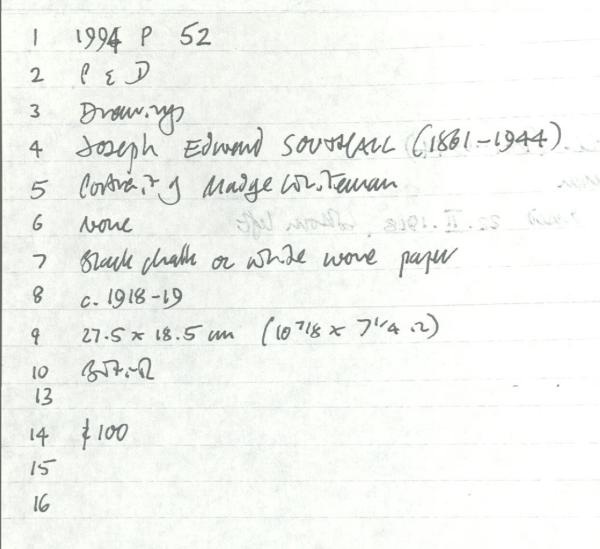 1 1994 P 52
2 P & D
3 Drawings
4 Joseph Edward SOUTHALL (1861-1944)
5 Portrait of Madge Whiteman
6 None
7 Black chalk on white wove paper
8 c. 1918-19
9 27.5 x 18.5 cm (10 7/8 x 7 1/4 in)
10 British
13
14 £100
15
16